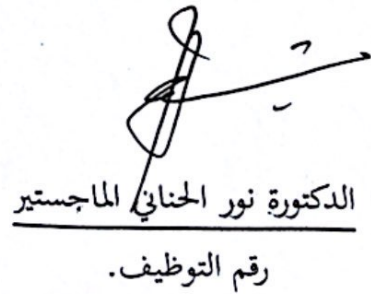 الدكتورة نور الحناني الماجستير
رقم التوظيف.